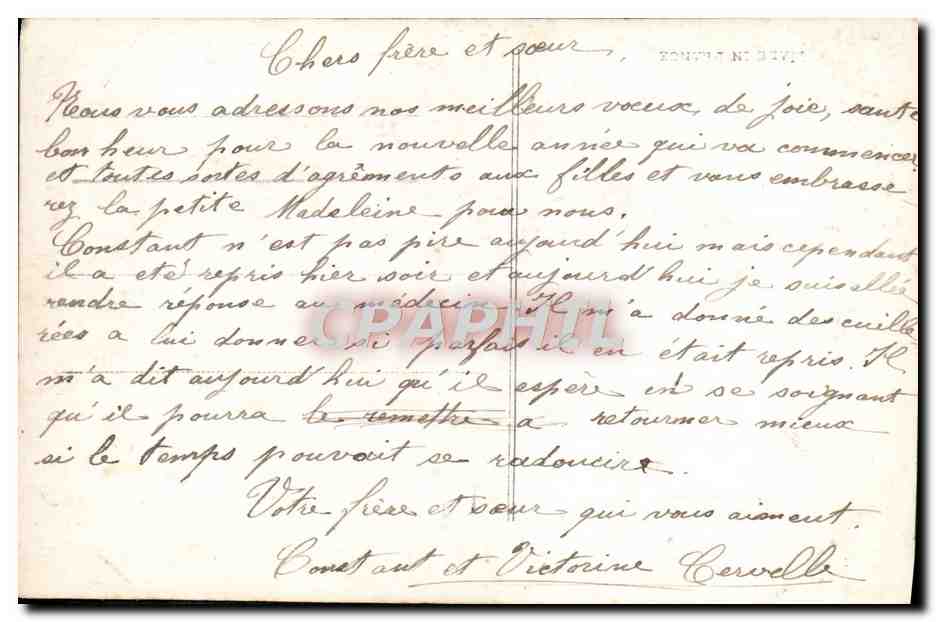 Chers frère et sœur,
MADE IN FRANCE
Nous vous adressons nos meilleurs vœux, de joie, santé
bonheur pour la nouvelle année qui va commencer
et toutes sortes d'agrêments aux filles et vous embrasse
rez la petite Madeleine pour nous.
Constant n'est pas pire aujourd'hui mais cependant
il a eté repris hier soir et aujourd'hui je suis allée
rendre réponse au médecin. Il m'à donné des cuille
CPAPHIL
rées a lui donner si parfois il en était repris. Il
m'a dit aujourd'hui qu'il espère en se soignant
qu'il pourra le remettre a retourner mieux
si le temps pouvait se radoucire.
Votre frère et sœur qui vous aiment.
Constant et Victorine Cervelle